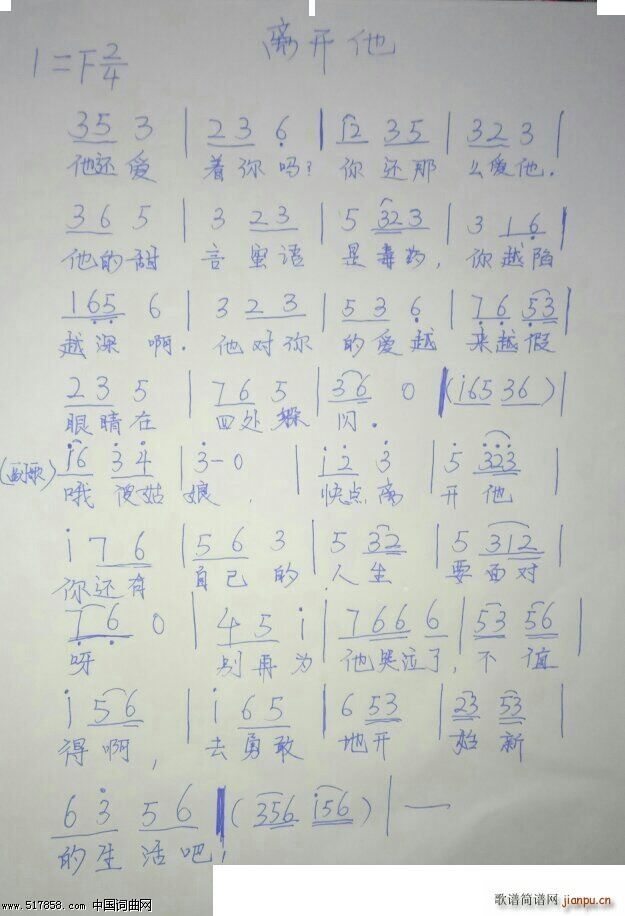 离开他
1=F 2/4
35 3 | 23 6 | i2 35 | 32 3 |
他还爱 着你吗? 你还那 么爱他.
36 5 | 3 23 | 5 323 | 3 16 |
他的甜 言蜜语 是毒药, 你越陷
165 6 | 3 23 | 53 6 | 76 53 |
越深啊. 他对你 的爱越 来越假
23 5 | 76 5 | 36 0 | (i65 36) |
眼睛在 四处躲 闪.
(副歌) i6 34 | 3-0 | i2 3 | 5 323 |
哦 傻姑 娘, 快点离 开他
i 76 | 56 3 | 5 32 | 5 312 |
你还有 自己的 人生 要面对
76 0 | 45 i | 766 6 | 53 56 |
呀 别再为 他哭泣了, 不值
i 56 | i 65 | 6 53 | 23 53 |
得啊, 去勇敢 地开 始新
63 56 | (356 i56) | —
的生活吧,
www.517858.com 中国词曲网
歌谱简谱网 jianpu.cn